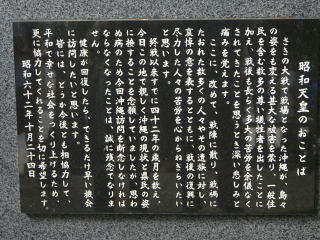 昭和天皇のおことば
さきの大戦で戦場となった沖縄が、島々
の姿をも変える甚大な被害を蒙り、一般住
民を含む数多の尊い犠牲者を出したことに
加え、戦後も長らく多大の苦労を余儀なく
されてきたことを思うとき、深い悲しみと
痛みを覚えます。
ここに、改めて、戦陣に散り、戦禍に
たおれた数多くの人々やその遺族に対し、
哀悼の意を表するとともに、戦後の復興に
尽力した人々の苦労を心からねぎらいたい
と思います。
終戦以来すでに四十二年の歳月を数え、
今日この地で親しく沖縄の現状と県民の姿
に接することを念願していましたが、思わ
ぬ病のため今回沖縄訪問を断念しなければ
ならなくなったことは、誠に残念でなりま
せん。
健康が回復したら、できるだけ早い機会
に訪問したいと思います。
皆には、どうか今後とも相協力して、
平和で幸せな社会をつくり上げるため、
更に協力してくれることを切に希望します。
昭和六十二年十月二十四日